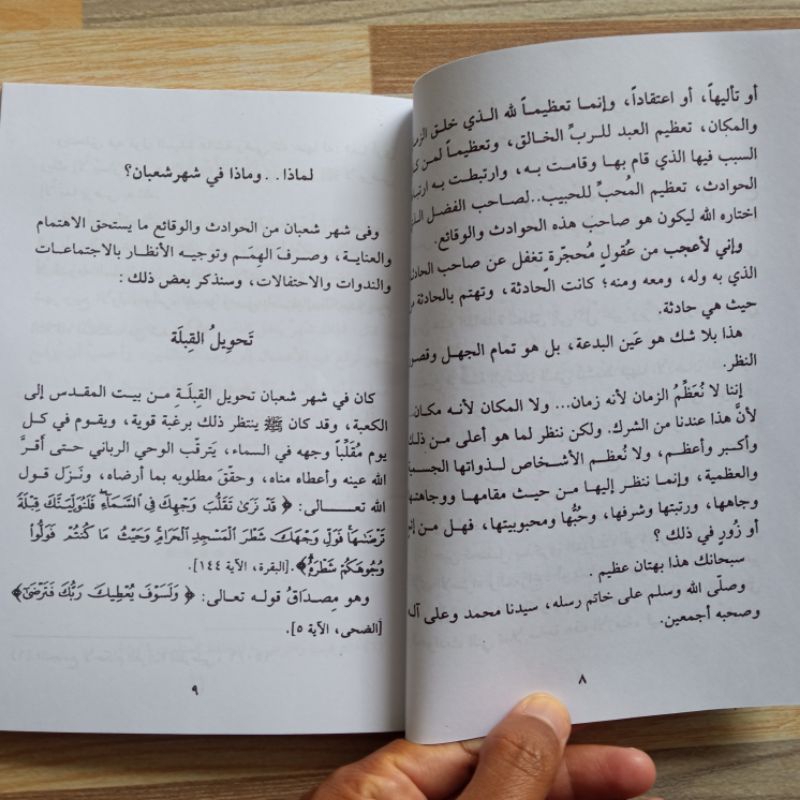 أو تأليهاً، أو اعتقاداً، وإنما تعظيماً لله الذي خلق
والمكان، تعظيم العبد للربِّ الخالق، وتعظيماً لمن
السبب فيها الذي قام بها وقامت به، وارتبطت به
الحوادث، تعظيم المُحبِّ للحبيب..لصاحب الفضل
اختاره الله ليكون هو صاحب هذه الحوادث والوقائع.
وإني لأعجب من عُقولٍ مُحجّرةٍ تغفل عن صاحب
الذي به وله، ومعه ومنه؛ كانت الحادثة، وتهتم بالحادثة
حيث هي حادثة.
هذا بلا شك هو عَين البدعة، بل هو تمام الجهل
النظر.
إننا لا نُعَظِّمُ الزمان لأنه زمان... ولا المكان لأنه مكان
لأنَّ هذا عندنا من الشرك. ولكن ننظر لما هو أعلى من
وأكبر وأعظم، ولا نُعظم الأشخاص لذواتها
والعظمية، وإنما ننظر إليها من حيث مقامها
وجاهها، ورتبتها وشرفها، وحُبُّها ومحبوبيتها، فهل من
أو زُورٍ في ذلك ؟
سبحانك هذا بهتان عظيم .
وصلّى الله وسلم على خاتم رسله، سيدنا محمد وعلى
وصحبه أجمعين.
٨
لماذا. .وماذا في شهرشعبان؟
وفى شهر شعبان من الحوادث والوقائع ما يستحق الاهتمام
والعناية، وصرف الهِمَم وتوجيه الأنظار بالاجتماعات
والندوات والاحتفالات، وسنذكر بعض ذلك :
تَحوِيلُ القِبلَة
كان في شهر شعبان تحويل القِبلَةِ من بيت المقدس إلى
الكعبة، وقد كان ﷺ ينتظر ذلك برغبة قوية، ويقوم في كل
يوم مُقَلِّباً وجهه في السماء، يَترقّب الوحي الرباني حتى أقرَّ
الله عينه وأعطاه مناه، وحقّق مطلوبه بما أرضاه، ونَزل قول
الله تعالى: ﴿ قَدْ نَرَىٰ تَقَلُّبَ وَجْهِكَ فِي السَّمَاءِ ۖ فَلَنُوَلِّيَنَّكَ قِبْلَةً
تَرْضَاهَا ۚ فَوَلِّ وَجْهَكَ شَطْرَ الْمَسْجِدِ الْحَرَامِ ۚ وَحَيْثُ مَا كُنتُمْ فَوَلُّوا
وُجُوهَكُمْ شَطْرَهُ ﴾.[البقرة، الآية ١٤٤].
وهو مِصدَاقُ قوله تعالى: ﴿ وَلَسَوْفَ يُعْطِيكَ رَبُّكَ فَتَرْضَىٰ ﴾
[الضحى، الآية ٥].
٩